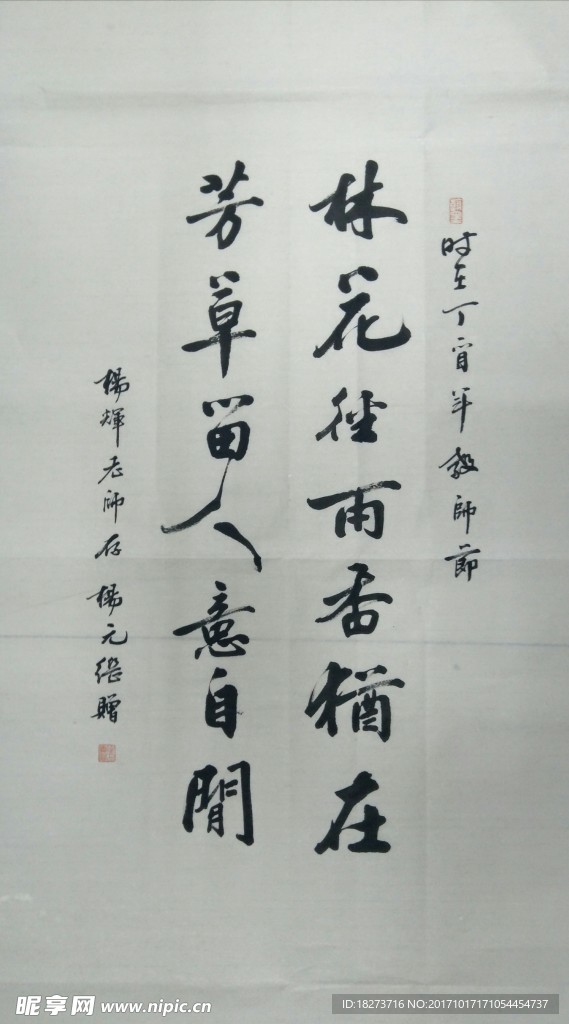 时在丁酉年教師節
林花径雨香猶在
芳草留人意自閒
楊輝老師存 楊元繼贈
昵享网 www.nipic.cn
ID:18273716 NO:20171017171054454737